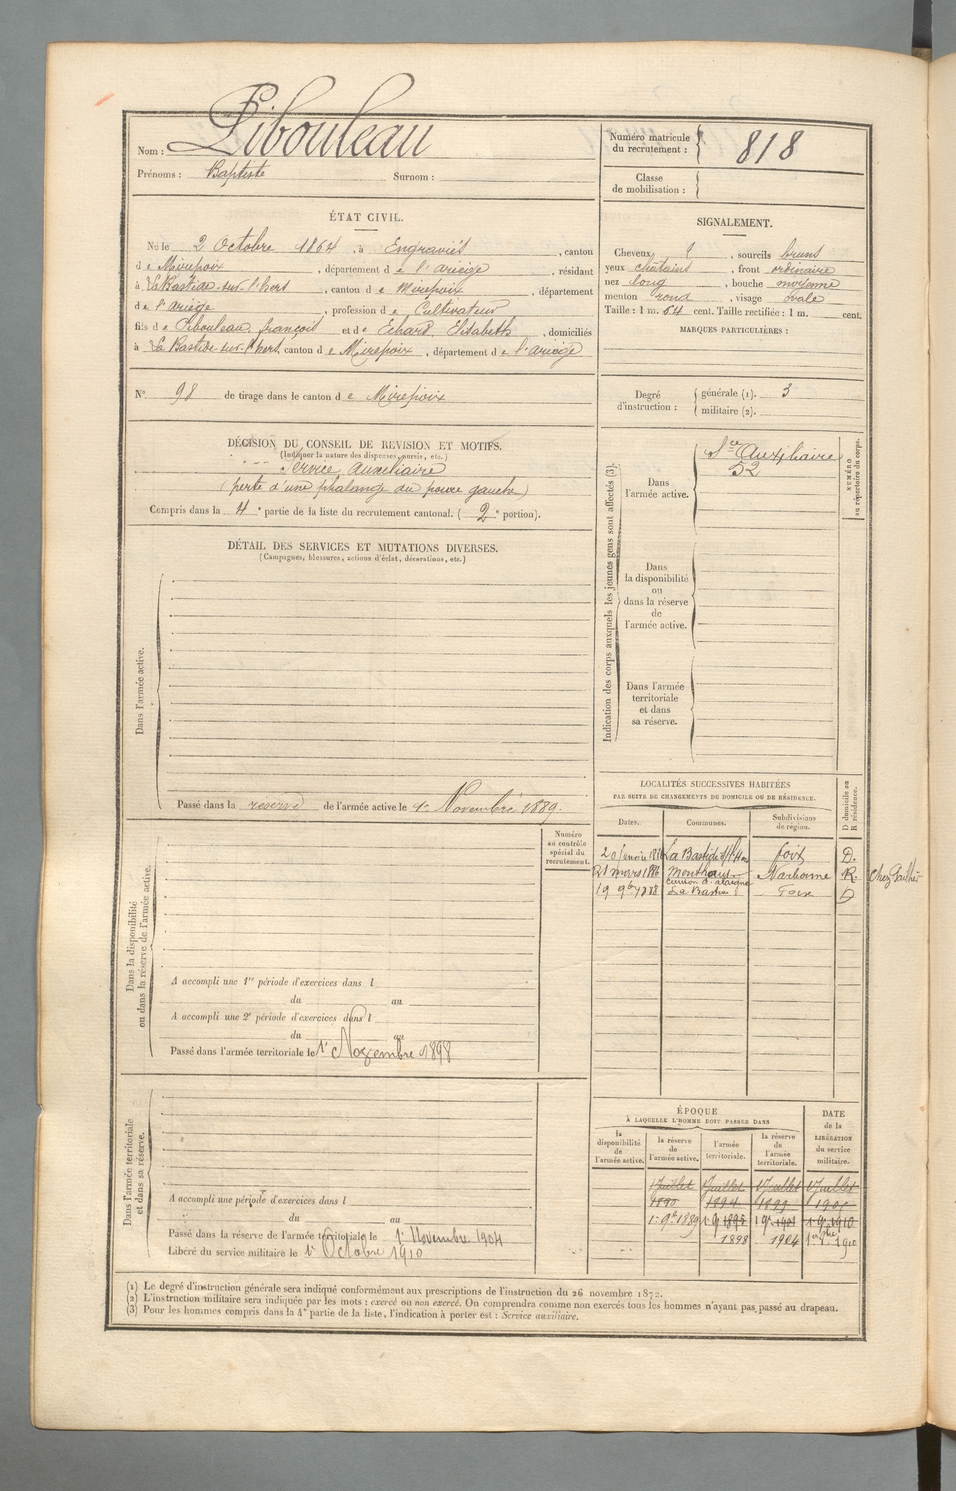 Nom : Pibouleau
Prénoms : Baptiste Surnom :
Numéro matricule du recrutement : 818
Classe de mobilisation :
ÉTAT CIVIL.
Né le 2 Octobre 1864, à Engraviès, canton
de Mirepoix, département de l'ariège, résidant
à La Bastide-sur-l'hers, canton de Mirepoix, département
de l'ariège, profession de Cultivateur
fils de Pibouleau, françois et de Echard, Elisabeth, domiciliés
à La Bastide-sur-l'hers, canton de Mirepoix, département de l'ariège
SIGNALEMENT.
Cheveux, sourcils bruns
yeux châtains, front ordinaire
nez long, bouche moyenne
menton rond, visage ovale
Taille : 1 m. 54 cent. Taille rectifiée : 1 m. cent.
MARQUES PARTICULIÈRES :
N° 98 de tirage dans le canton de Mirepoix
Degré d'instruction : générale (1). 3
militaire (2).
DÉCISION DU CONSEIL DE REVISION ET MOTIFS.
(Indiquer la nature des dispenses, sursis, etc.)
Service auxiliaire
(perte d'une phalange du pouce gauche)
Compris dans la 4e partie de la liste du recrutement cantonal. (2e portion).
DÉTAIL DES SERVICES ET MUTATIONS DIVERSES.
(Campagnes, blessures, actions d'éclat, décorations, etc.)
Dans l'armée active.
Passé dans la réserve de l'armée active le 1er Novembre 1889.
Indication des corps auxquels les jeunes gens sont affectés (3).
Dans l'armée active.
Sce Auxiliaire
52
NUMÉRO au répertoire du corps.
Dans la disponibilité ou dans la réserve de l'armée active.
Dans l'armée territoriale et dans sa réserve.
LOCALITÉS SUCCESSIVES HABITÉES
PAR SUITE DE CHANGEMENTS DE DOMICILE OU DE RÉSIDENCE.
Dates. Communes. Subdivisions de région. D domicile ou R résidence.
20 Janvier 1886 La Bastide s/l'Hers foix D.
21 mars 1886 Monthaut Narbonne R.
canton d'alaigne
19 9bre 1888 La Bastide Foix D
Dans la disponibilité ou dans la réserve de l'armée active.
Numéro au contrôle spécial du recrutement.
A accompli une 1re période d'exercices dans l
du au
A accompli une 2e période d'exercices dans l
du au
Passé dans l'armée territoriale le 1er Novembre 1898
Dans l'armée territoriale et dans sa réserve.
A accompli une période d'exercices dans l
du au
Passé dans la réserve de l'armée territoriale le 1er Novembre 1904
Libéré du service militaire le 1er Octobre 1910
ÉPOQUE
À LAQUELLE L'HOMME DOIT PASSER DANS
DATE de la LIBÉRATION du service militaire.
la disponibilité de l'armée active. la réserve de l'armée active. l'armée territoriale. la réserve de l'armée territoriale.
1 Juillet 1 Juillet 1 Juillet 1 Juillet
1890 1894
1er 9b 1889 1 9 1895 1 9b 1901 1 9 1910
1898 1904 1910
(1) Le degré d'instruction générale sera indiqué conformément aux prescriptions de l'instruction du 26 novembre 1872.
(2) L'instruction militaire sera indiquée par les mots : exercé ou non exercé. On comprendra comme non exercés tous les hommes n'ayant pas passé au drapeau.
(3) Pour les hommes compris dans la 4e partie de la liste, l'indication à porter est : Service auxiliaire.